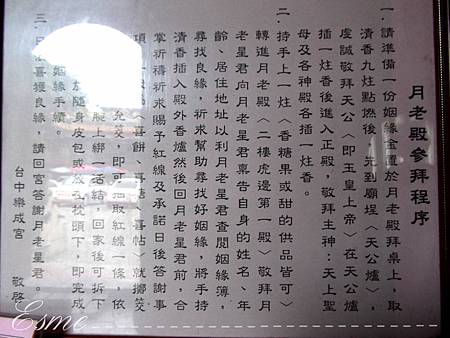 月老殿參拜程序
一．請準備一份姻緣金置於月老殿拜桌上，取
清香九炷點然後，先到廟埕〈天公爐〉，
虔誠敬拜天公〈即玉皇上帝〉在天公爐
插一炷香後進入正殿，敬拜主神：天上聖
母及各神殿各插一炷香。
二．持手上一炷〈香糖果或甜的供品皆可〉
轉進月老殿〈二樓虎邊第一殿〉敬拜月
老星君向月老星君稟告自身的姓名、年
齡、居住地址以利月老星君查閱姻緣簿，
尋找良緣，祈求幫助尋找好姻緣，將手持
清香插入殿外香爐然後回月老星君前，合
掌祈禱祈求賜予紅線及承諾日後答謝事
項〈喜餅、喜糖、喜帖〉就擲筊
允筊，即可抽取紅線一條，依
腕上綁一活結，回家後可拆下
隨身皮包或放在枕頭下，即完成
姻緣手續。
三．日後喜獲良緣，請回宮答謝月老星君。
台中樂成宮 敬啓
Esme